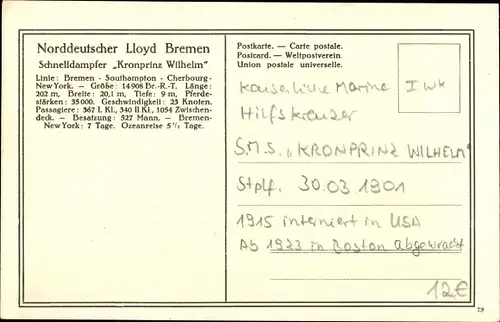 Norddeutscher Lloyd Bremen
Schnelldampfer „Kronprinz Wilhelm"
Linie: Bremen - Southampton - Cherbourg-
New York. — Größe: 14908 Br.-R.-T. Länge:
202 m, Breite: 20,1 m, Tiefe: 9 m, Pferde-
stärken: 35000. Geschwindigkeit: 23 Knoten.
Passagiere: 367 I. Kl., 340 II. Kl., 1054 Zwischen-
deck. — Besatzung: 527 Mann. — Bremen-
New York: 7 Tage. Ozeanreise 5½ Tage.
Postkarte. — Carte postale.
Postcard. — Weltpostverein.
Union postale universelle.
Kaiserliche Marine
I Wk
Hilfskreuzer
S.M.S. „KRONPRINZ WILHELM"
Stplf. 30.03 1901
1915 interniert in USA
Ab 1923 in Boston abgewrackt
12€